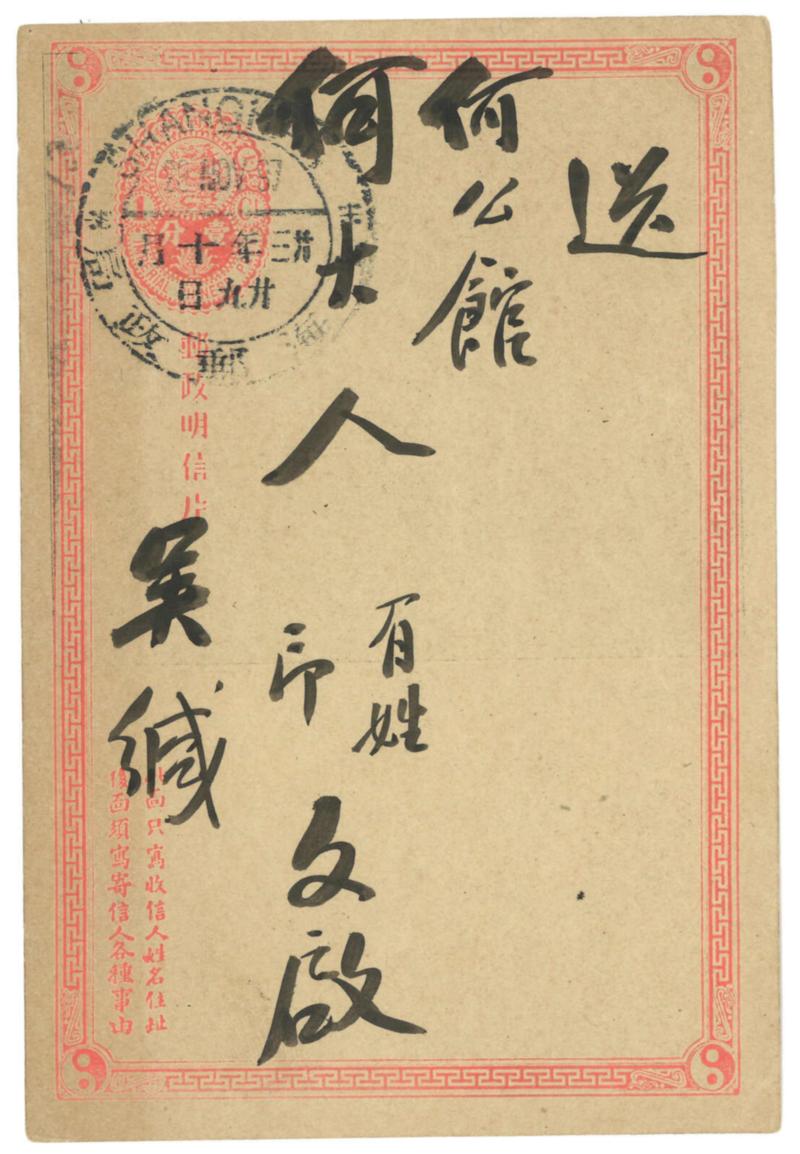 送
何公館
何大人
百姓
印
文啟
吳緘
郵政明信片
此面只寫收信人姓名住址
後面須寫寄信人各種事由
SHANGH
NOV 97
廿三年十月
廿九日
海郵政局